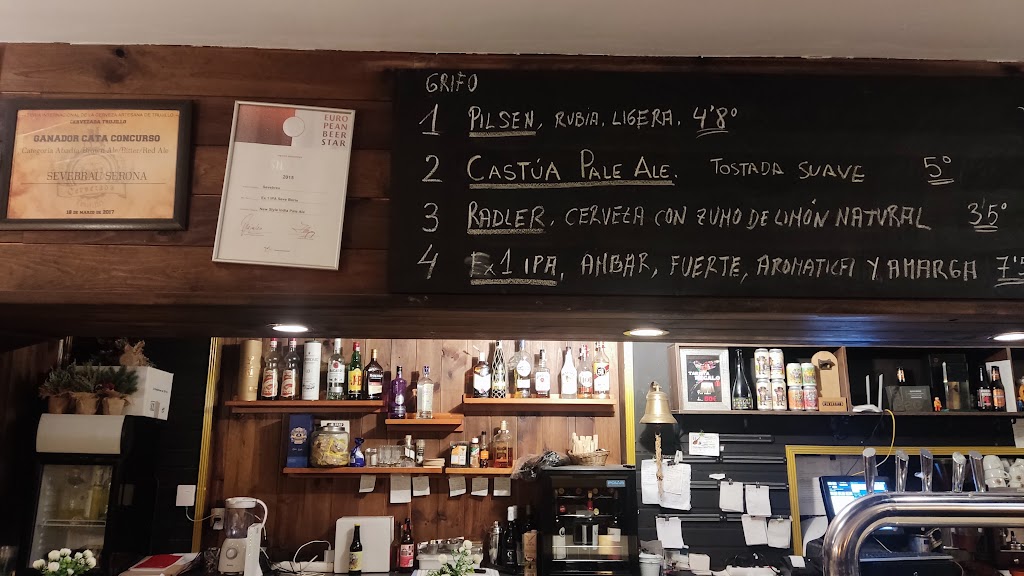 GANADOR CATA CONCURSO
SEVEBRAU SERONA
18 DE MARZO DE 2017
EURO
PEAN
BEER
STAR
2016
GRIFO
1 PILSEN, RUBIA, LIGERA. 4'8º
2 CASTÚA PALE ALE. TOSTADA SUAVE 5º
3 RADLER, CERVEZA CON ZUMO DE LIMÓN NATURAL 3'5º
4 Ex1 IPA, AMBAR, FUERTE, AROMATICA Y AMARGA 7'5